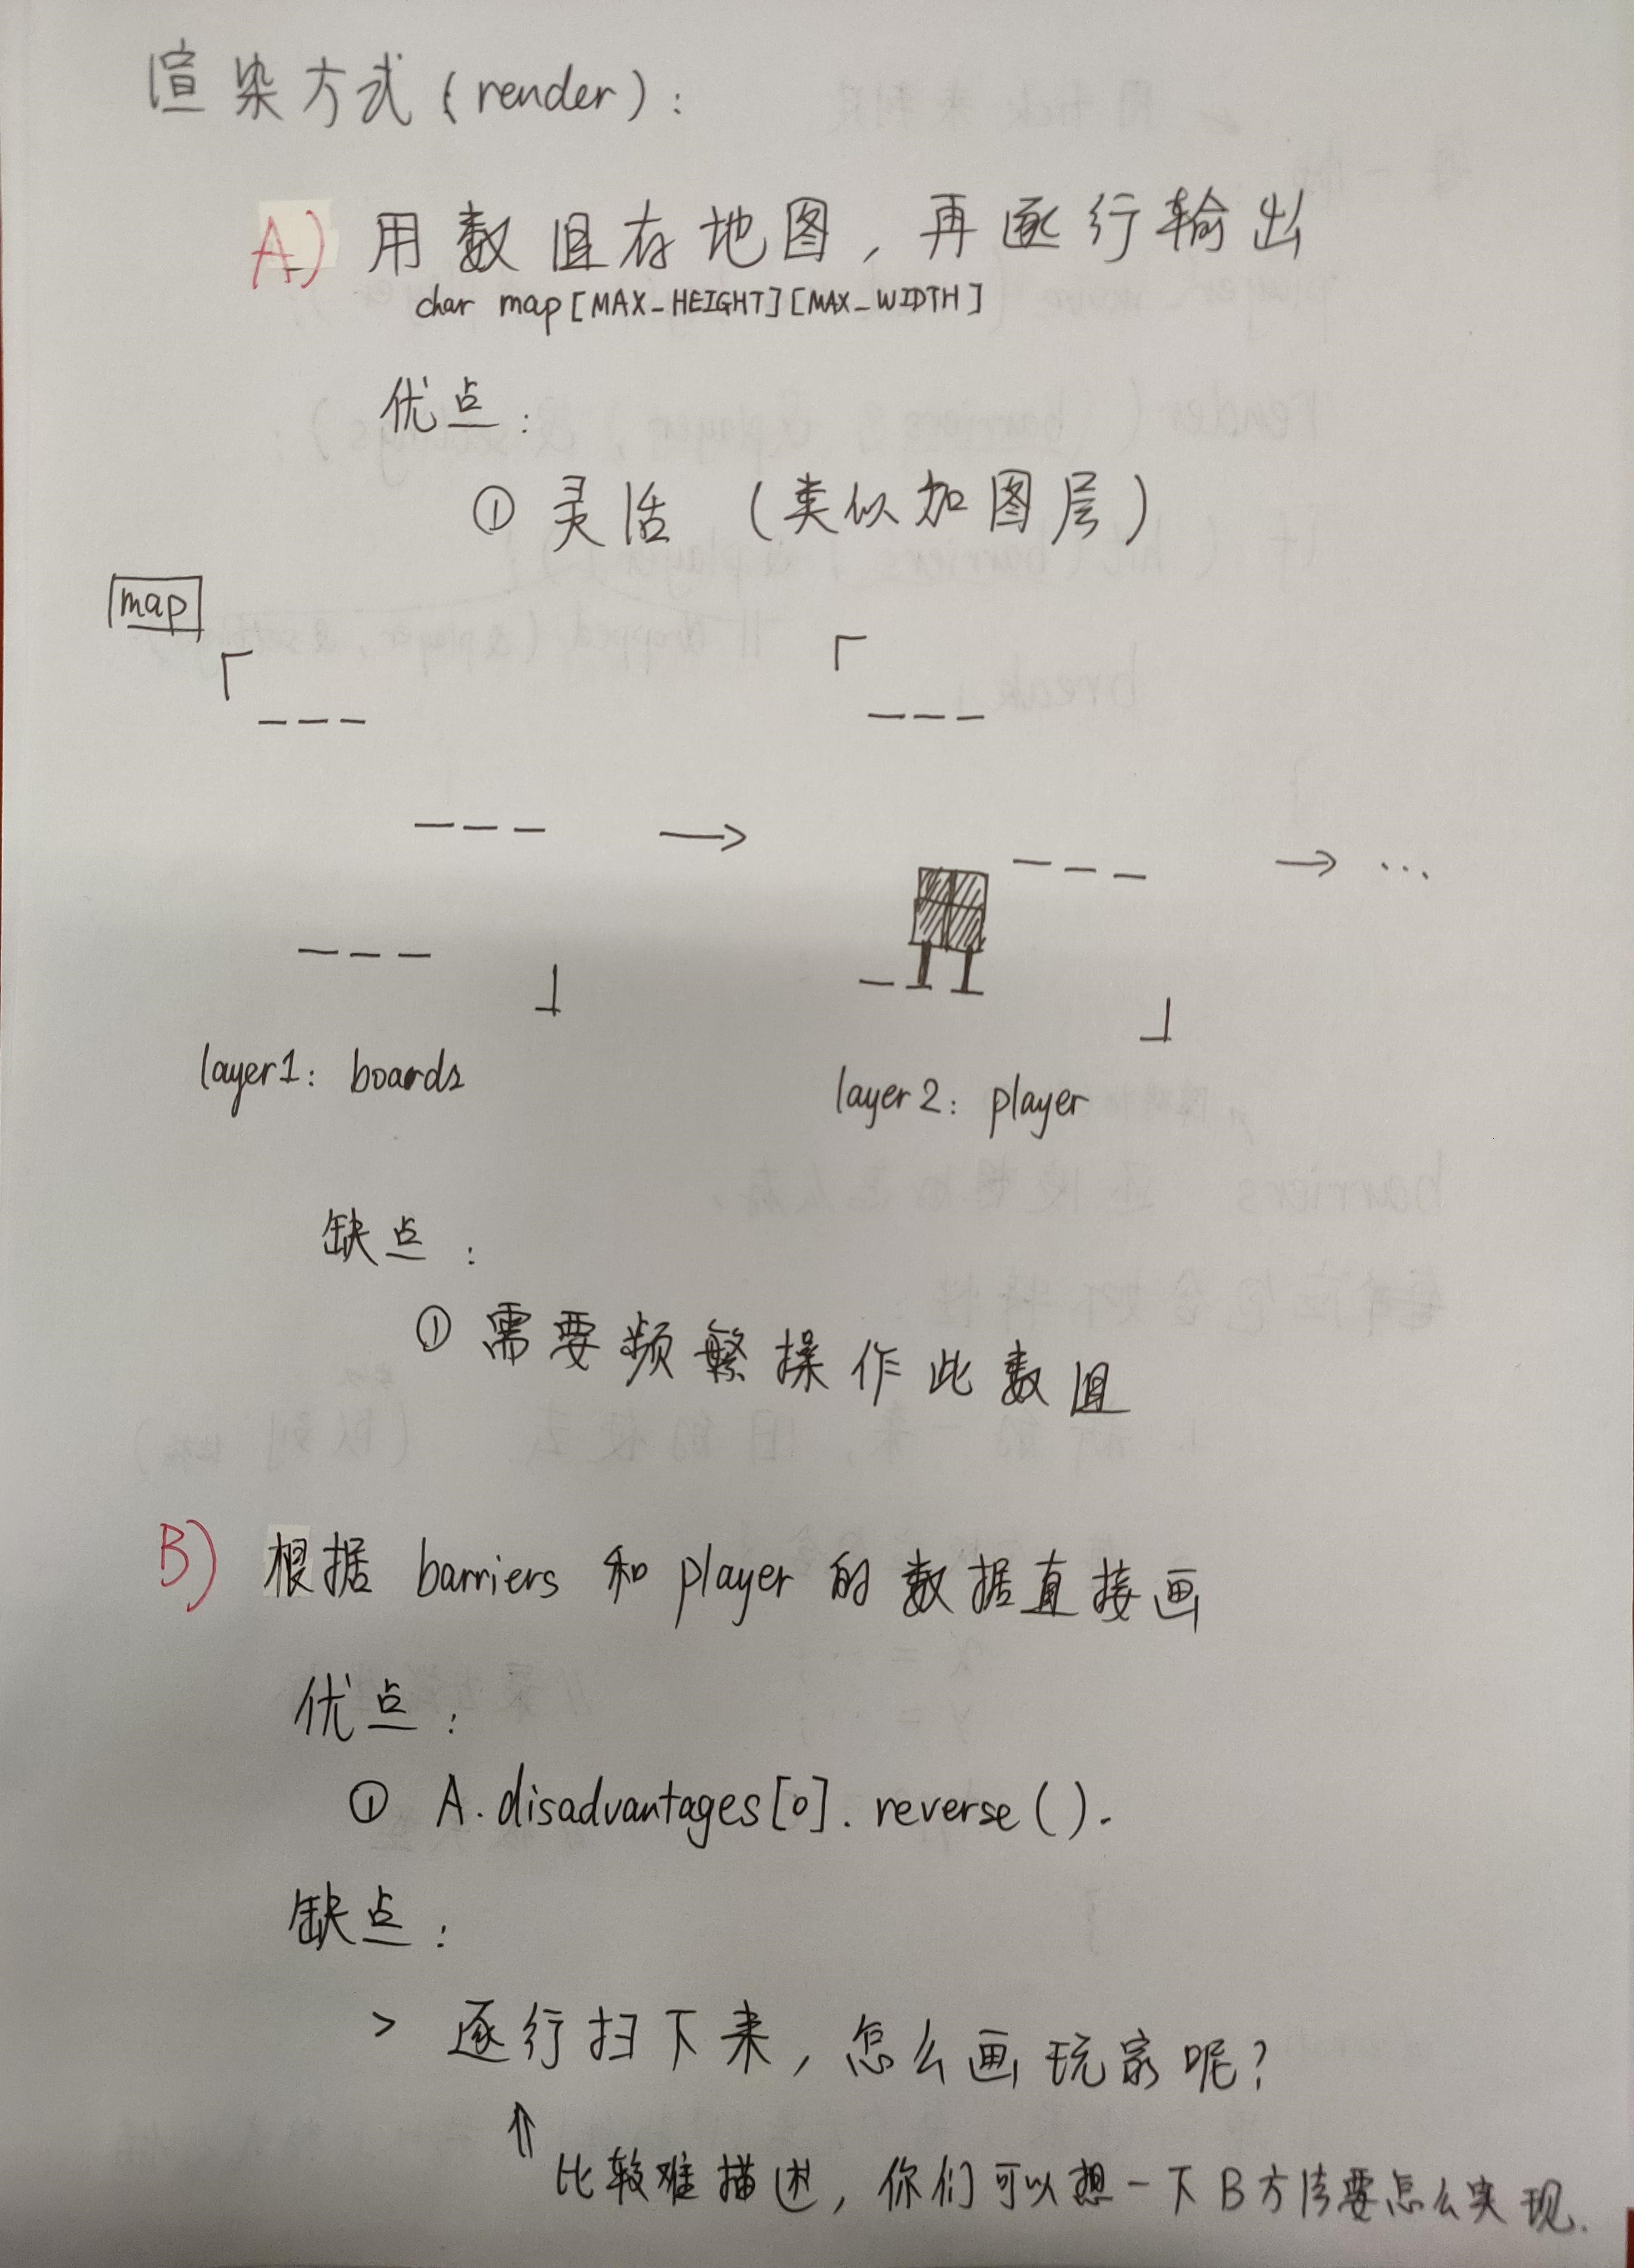 渲染方式(render):
A) 用数组存地图,再逐行输出
char map[MAX_HEIGHT][MAX_WIDTH]
优点:
① 灵活 (类似加图层)
map
layer1: boards
layer2: player
缺点:
① 需要频繁操作此数组
B) 根据 barriers 和 player 的数据直接画
优点:
① A.disadvantages[0].reverse().
缺点:
> 逐行扫下来,怎么画玩家呢?
⇑ 比较难描述,你们可以想一下B方法要怎么实现.